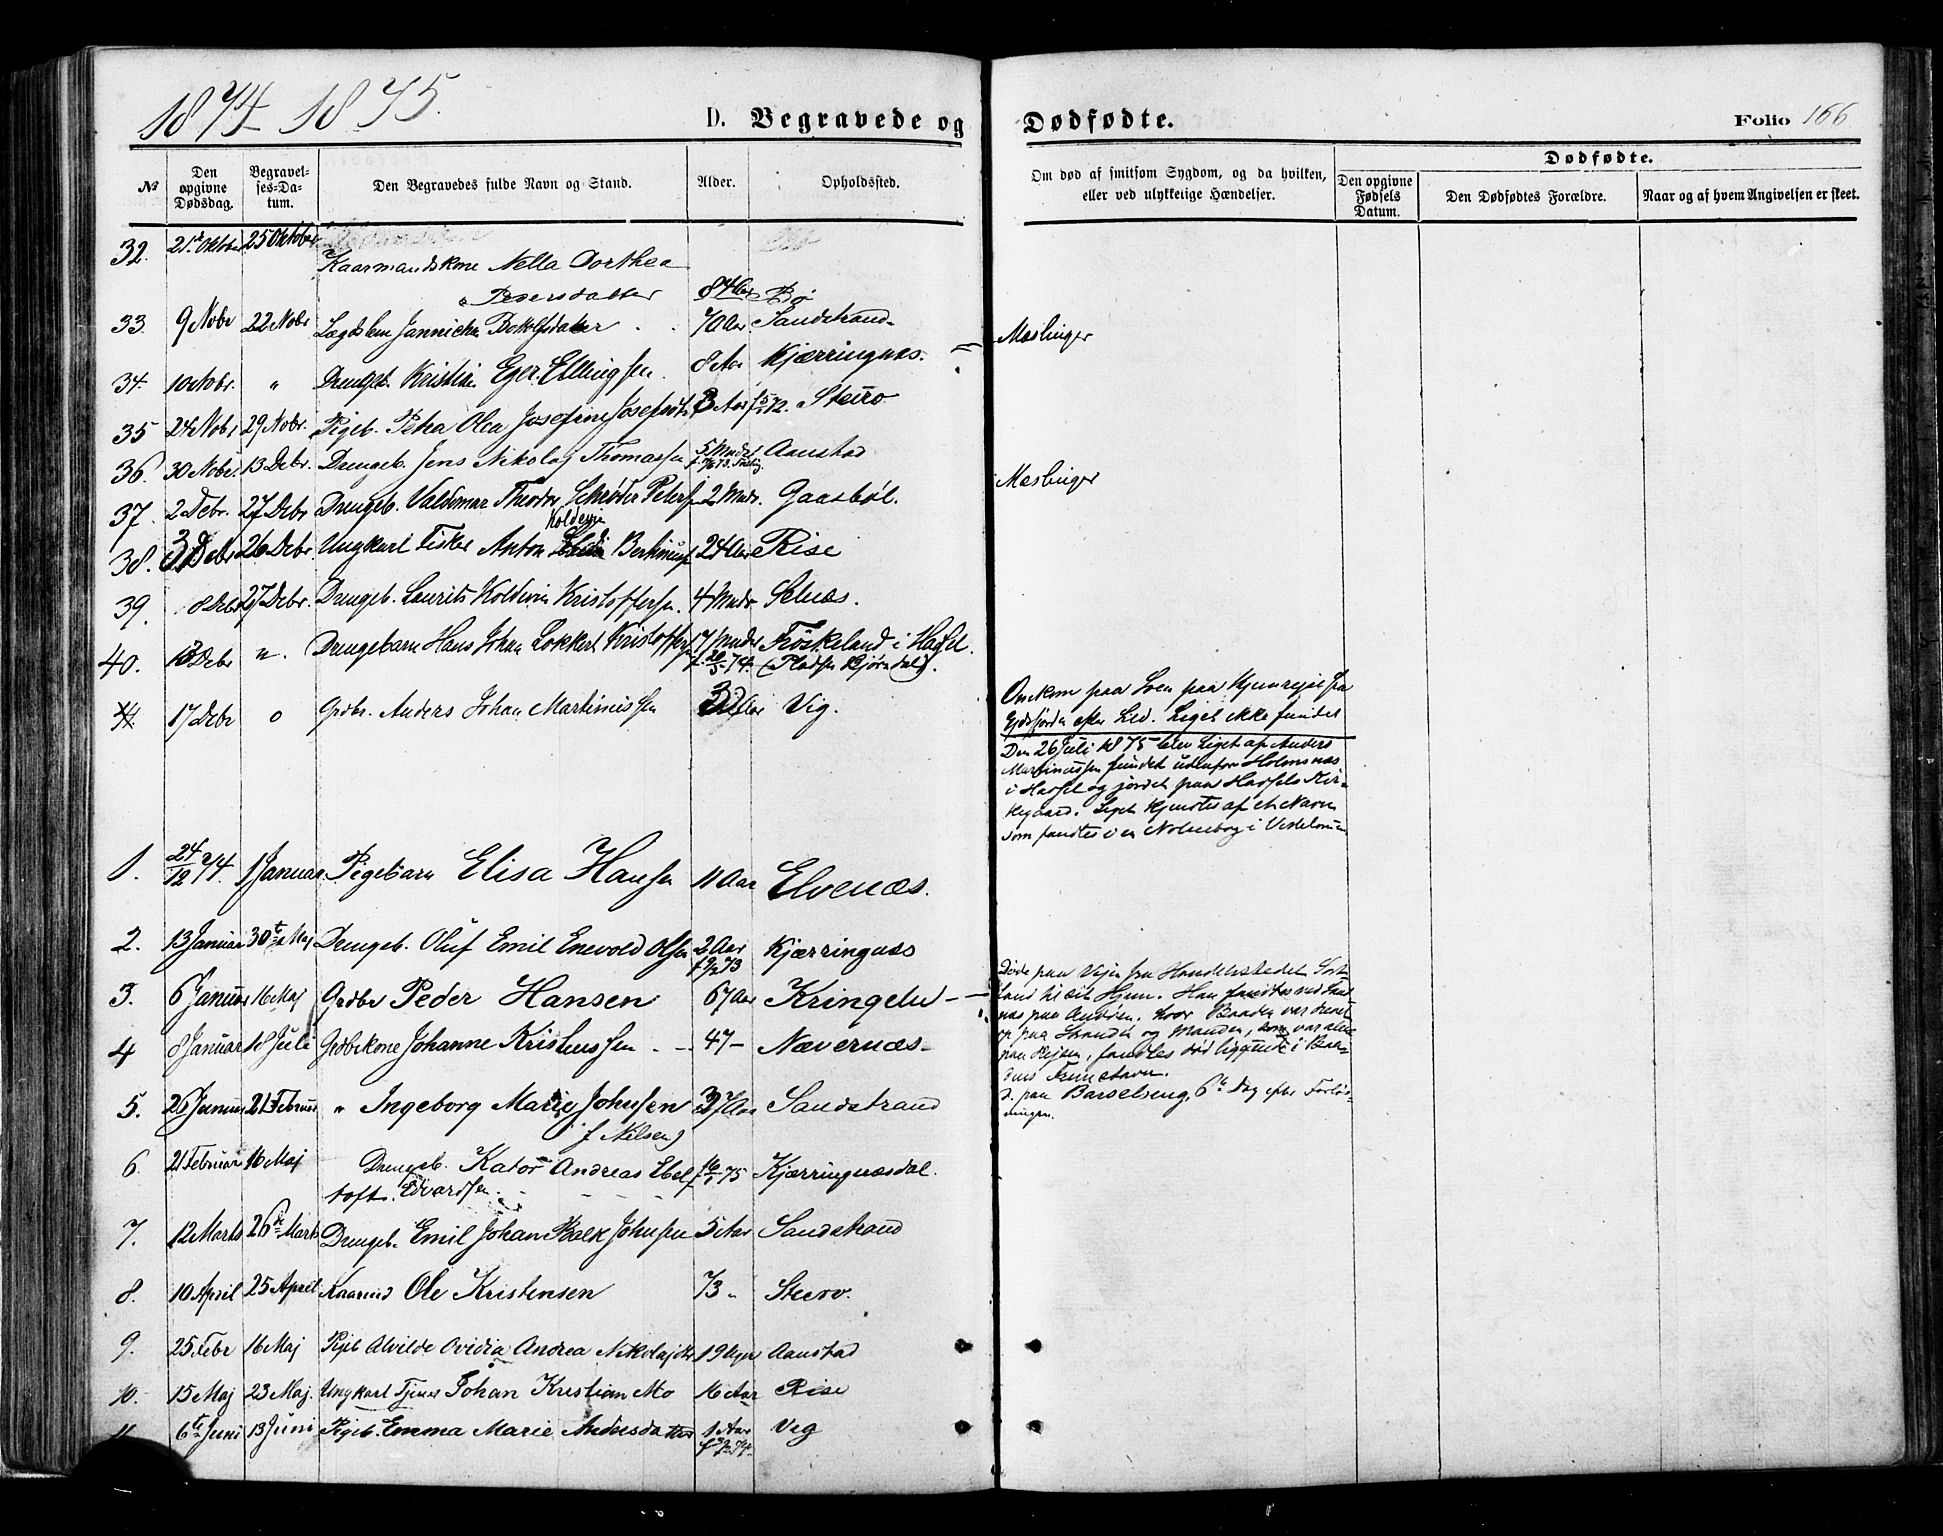 1874-1875.
D. Begravede og Dødfødte.
Folio 166
№ Den opgivne Dødsdag. Begravelses-Datum. Den Begravedes fulde Navn og Stand. Alder. Opholdssted. Om død af smitsom Sygdom, og da hvilken, eller ved ulykkelige Hændelser. Dødfødte. Den opgivne Fødsels Datum. Den Dødfødtes Forældre. Naar og af hvem Angivelsen er skeet.
32. 21de Oktober 25 Oktober
Kaarmandskone Nella Dorthea
Pedersdatter 84 Aar Bø
33. 9 Nobr 22 Nobr Lægdslem Jannicha 70 Aar Sandstrand
34. 10 Nobr. " Drengeb. Kristian Eger Ellingsen 8 Aar Kjærringnæs. Meslinger
35 24 Nobr 29 Nobr. Pigeb. Petra Olea Josefine 3 Aar Steiro
36. 30 Nobr. 13 Debr. Drengeb. Jens Nikolaj Thomassen 5 Mndr Aanstad
37. 2 Debr. 27 Debr Drengeb. Valdemar Theodor Schrøder Peters 2 Mndr. Gaasbøl. Meslinger
38. 3 Debr 26 Debr Ungkarl Fisker Anton Koldevin 24 Aar Rise
39. 8 Debr 27 Debr. Drengeb. Laurits Koldevin Kristoffersen. 4 Mndr Selnæs.
40. 13 Debr ". Drengebarn Hans Johan Lokkert Kristoffersen 7 Mndr Frøskeland i Hassel
f. 20/5 74. (Pladsen Bjørndal).
17 Debr o Grdbr. Anders Johan Martinussen Aar Vig.
Omkom paa Søen paa Hjemreise fra
Eidsfjorden efter Sild. Liget ikke fundet
Den 26 Juli 1875 blev Liget af Anders
Martinussen fundet udenfor Holmsnæs
i Hassel og jordet paa Hassels Kir-
kegaard. Liget kjendtes af et Navn
som fandtes i en Notisbog i Vestelommen
1. 24/12 74. 1 Januar Pigebarn Elisa Hansen 11 Aar Elvenæs.
2. 13 Januar 30te Maj Drengeb. Oluf Emil Enevold Olsen 2 Aar Kjærringnæs
3. 6 Januar 16 Maj Grdbr Peder Hansen 67 Aar Kringelen
Døde paa Vejen fra Handelsstedet Sort-
land til sit Hjem. Han fandtes ved
næs paa Andøen, hvor Baaden var
op paa Stranden og Manden, som var alene
paa Rejsen, fandtes død liggende i Baa-
dens Fremstavn.
4 8 Januar 18 Juli Grdbrkone Johanne Kristenssen 47 Nævernæs
5. 26 Januar 21 Februar " Ingeborg Marie Johnsen Aar Sandstrand
f Nilsen)
D. paa Barselseng, 6te Dag efter Forløs-
ningen.
6. 21 Februar 16 Maj Drengeb. Kator Andreas Ebel
toft Edvardsen f 75 Kjærringnæsdal.
7. 12 Marts 26de Marts Drengeb. Emil Johan Balk Johnsen 5 Aar Sandstrand
8. 10 April 25 April Kaarmd Ole Kristensen 73 " Steiro.
9. 25 Febr 16 Maj Pigeb Alvilde Ovidia Andrea Nikolajdtr 19 Uger Aanstad
10. 15 Maj 23 Maj. Ungkarl Tjener Johan Kristian Mo 16 Aar Rise
11. 6te Juni 13 Juni Pigeb. Emma Marie Andersdatter 1 Aar Vig